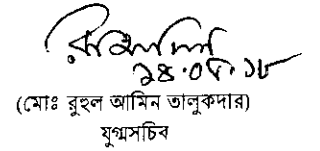 ২৪.০৮.১৮
(মোঃ রুহুল আমিন তালুকদার)
যুগ্মসচিব